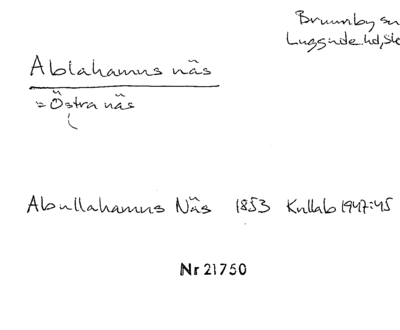 Brunnby sn
Luggude hd, Sk
Ablahamns näs
= Östra näs
Abullahamns Näs 1853 Kullab 1947:45
Nr 21750